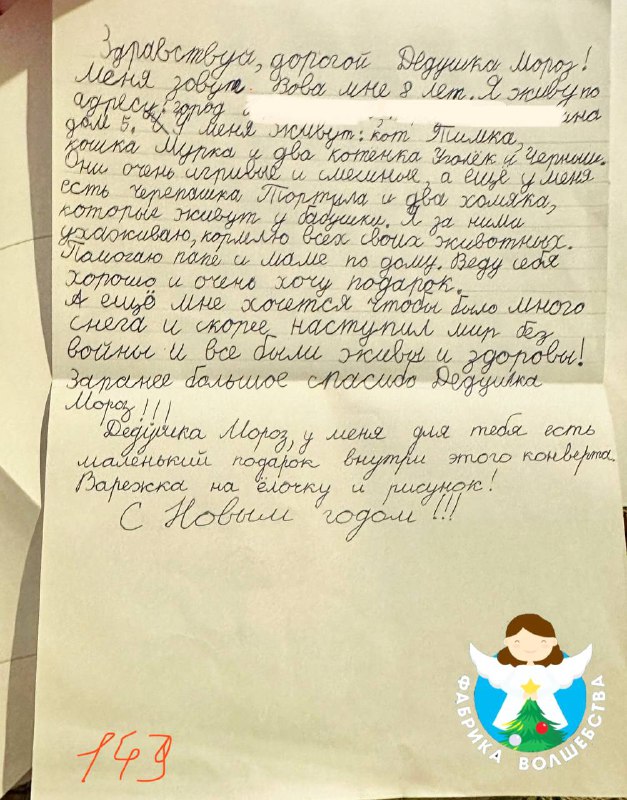 Здравствуй, дорогой Дедушка Мороз!
Меня зовут Вова мне 8 лет. Я живу по
адресу: город
дом 5. У меня живут: кот Тимка,
кошка Мурка и два котёнка Уголёк и Черныш.
Они очень игривые и смешные, а ещё у меня
есть черепашка Тортила и два хомяка,
которые живут у бабушки. Я за ними
ухаживаю, кормлю всех своих животных.
Помогаю папе и маме по дому. Веду себя
хорошо и очень хочу подарок.
А ещё мне хочется чтобы было много
снега и скорее наступил мир без
войны и все были живы и здоровы!
Заранее большое спасибо Дедушка
Мороз!!!
Дедушка Мороз, у меня для тебя есть
маленький подарок внутри этого конверта.
Варежка на ёлочку и рисунок!
С Новым годом!!!
ФАБРИКА ВОЛШЕБСТВА
149